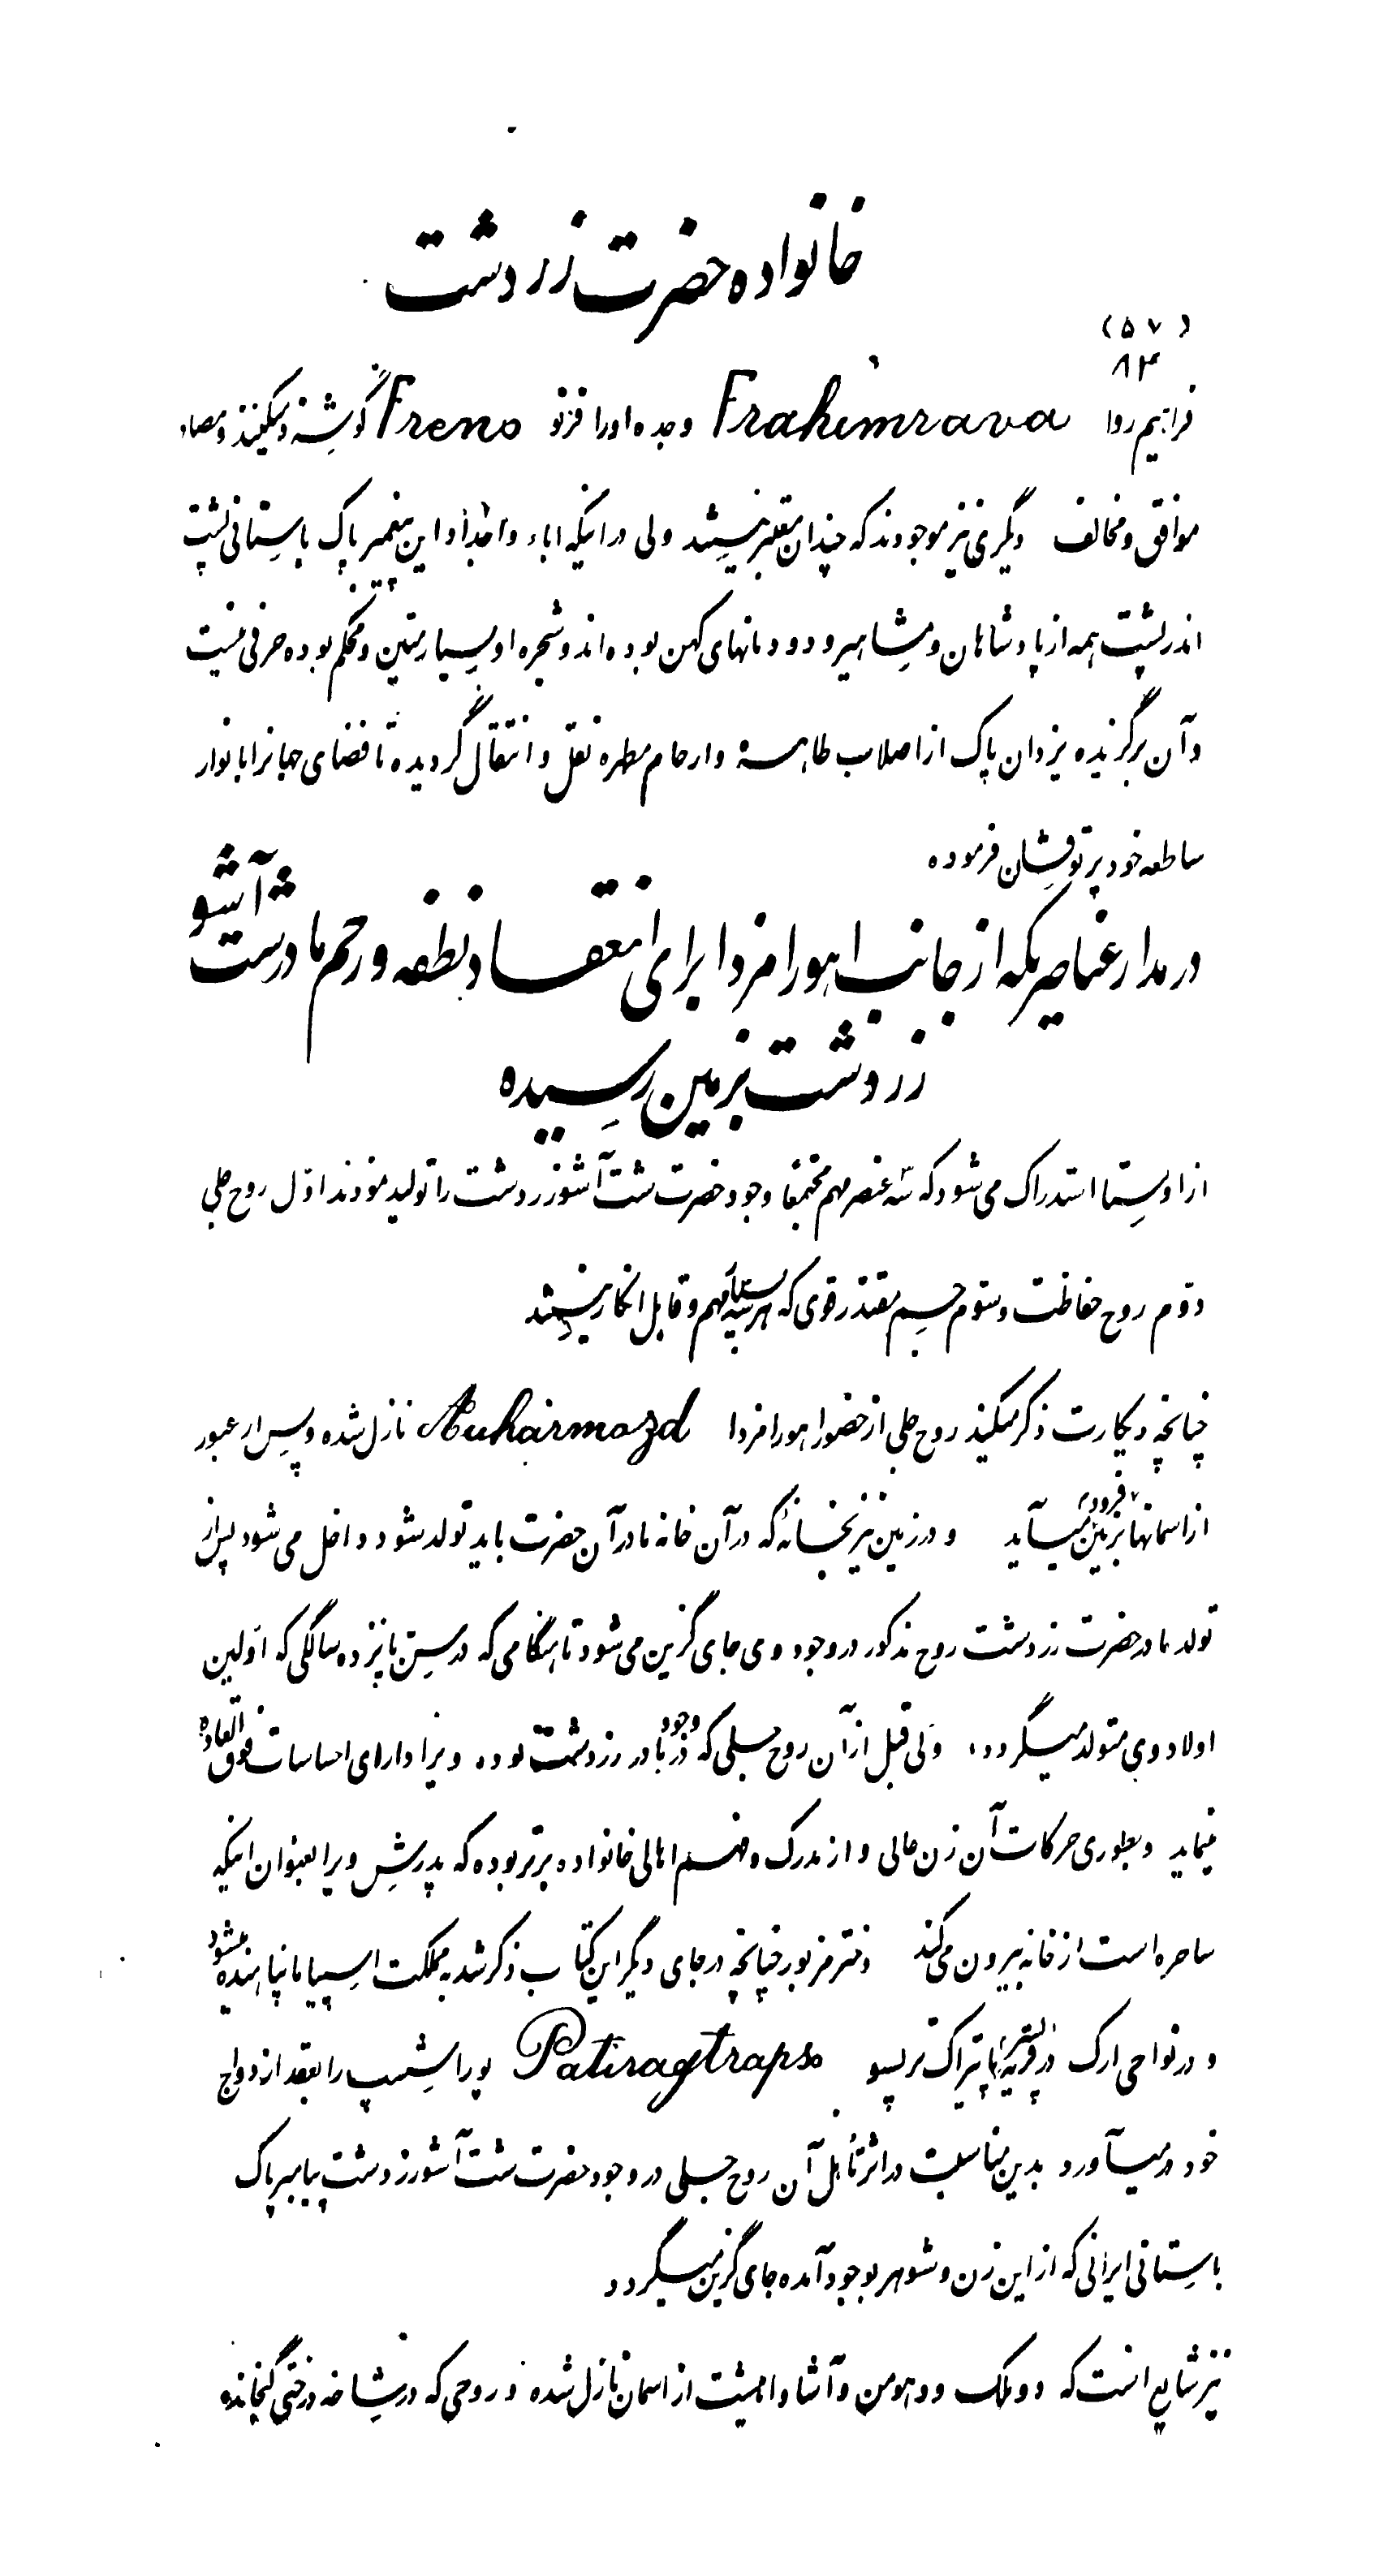 خانواده حضرت زردشت
(۵۷)
۸۴
فراهیم روا Frahimrava وجده اورا فرنو Freno گوشزد میکینند ومصادر
موافق ومخالف دیگری نیز موجودند که چندان معتبر نیستند ولی در اینکه اباء واجداد این پیغمبر پاک باستانی پشت
اندر پشت همه از پادشاهان ومشاهیر و دودمانهای کهن بوده اند وشجره او بسیار متین ومحکم بوده حرفی نیست
وآن برگزیده یزدان پاک از اصلاب طاهره وارحام مطهره نقل وانتقال گردیده تا فضای جهانرا بانوار
ساطعه خود پرتوفشان فرموده
در مدار عناصریکه از جانب اهورامزدا برای انعقاد نطفه در رحم مادر شت آشو
زردشت بزمین رسیده
از اوستا استدراک می شود که سه عنصر مهم مجتمعا وجود حضرت شت آشو زردشت را تولید نمودند اول روح جلی
دوم روح حفاظت وسوم جسم مقتدر قوی که هر سه مهم وقابل انکار نیستند
چنانچه دیکارت ذکر میکیند روح جلی از حضور اهورامزدا Auharmazd نازل شده وپس از عبور
از اسمانها بزمین فرود میآید و در زمین نیز بخانهٔ که در آن خانه مادر آن حضرت باید تولد شود داخل می شود پس از
تولد مادر حضرت زردشت روح مذکور در وجود وی جای گزین می شود تا هنگامی که در سن پانزده سالگی که اولین
اولاد وی متولد میگردد، ولی قبل از آن روح جبلی که در وجود مادر زردشت بوده ویرا دارای احساسات فوق العاده
مینماید وبطوری حرکات آن زن عالی و از مدرک وفهم اهالی خانواده برتر بوده که پدرش ویرا بعنوان اینکه
ساحره است از خانه بیرون می کند دختر مزبور چنانچه در جای دیگر این کتاب ذکر شد به مملکت اسپیاما پناهنده میشود
و در نواحی ارک در قریه پتیراک ترسپو Patiragtrapso پوراشسپ را بعقد ازدواج
خود درمیآورد بدین مناسبت در اثر تأهل آن روح جبلی در وجود حضرت شت آشو زردشت پیامبر پاک
باستانی ایرانی که از این زن وشوهر بوجود آمده جای گزین میگردد
نیز شایع است که دو ملک وهومن وآشا واهیشت از اسمان نازل شده و روحی که در شاخه درختی گنجانده